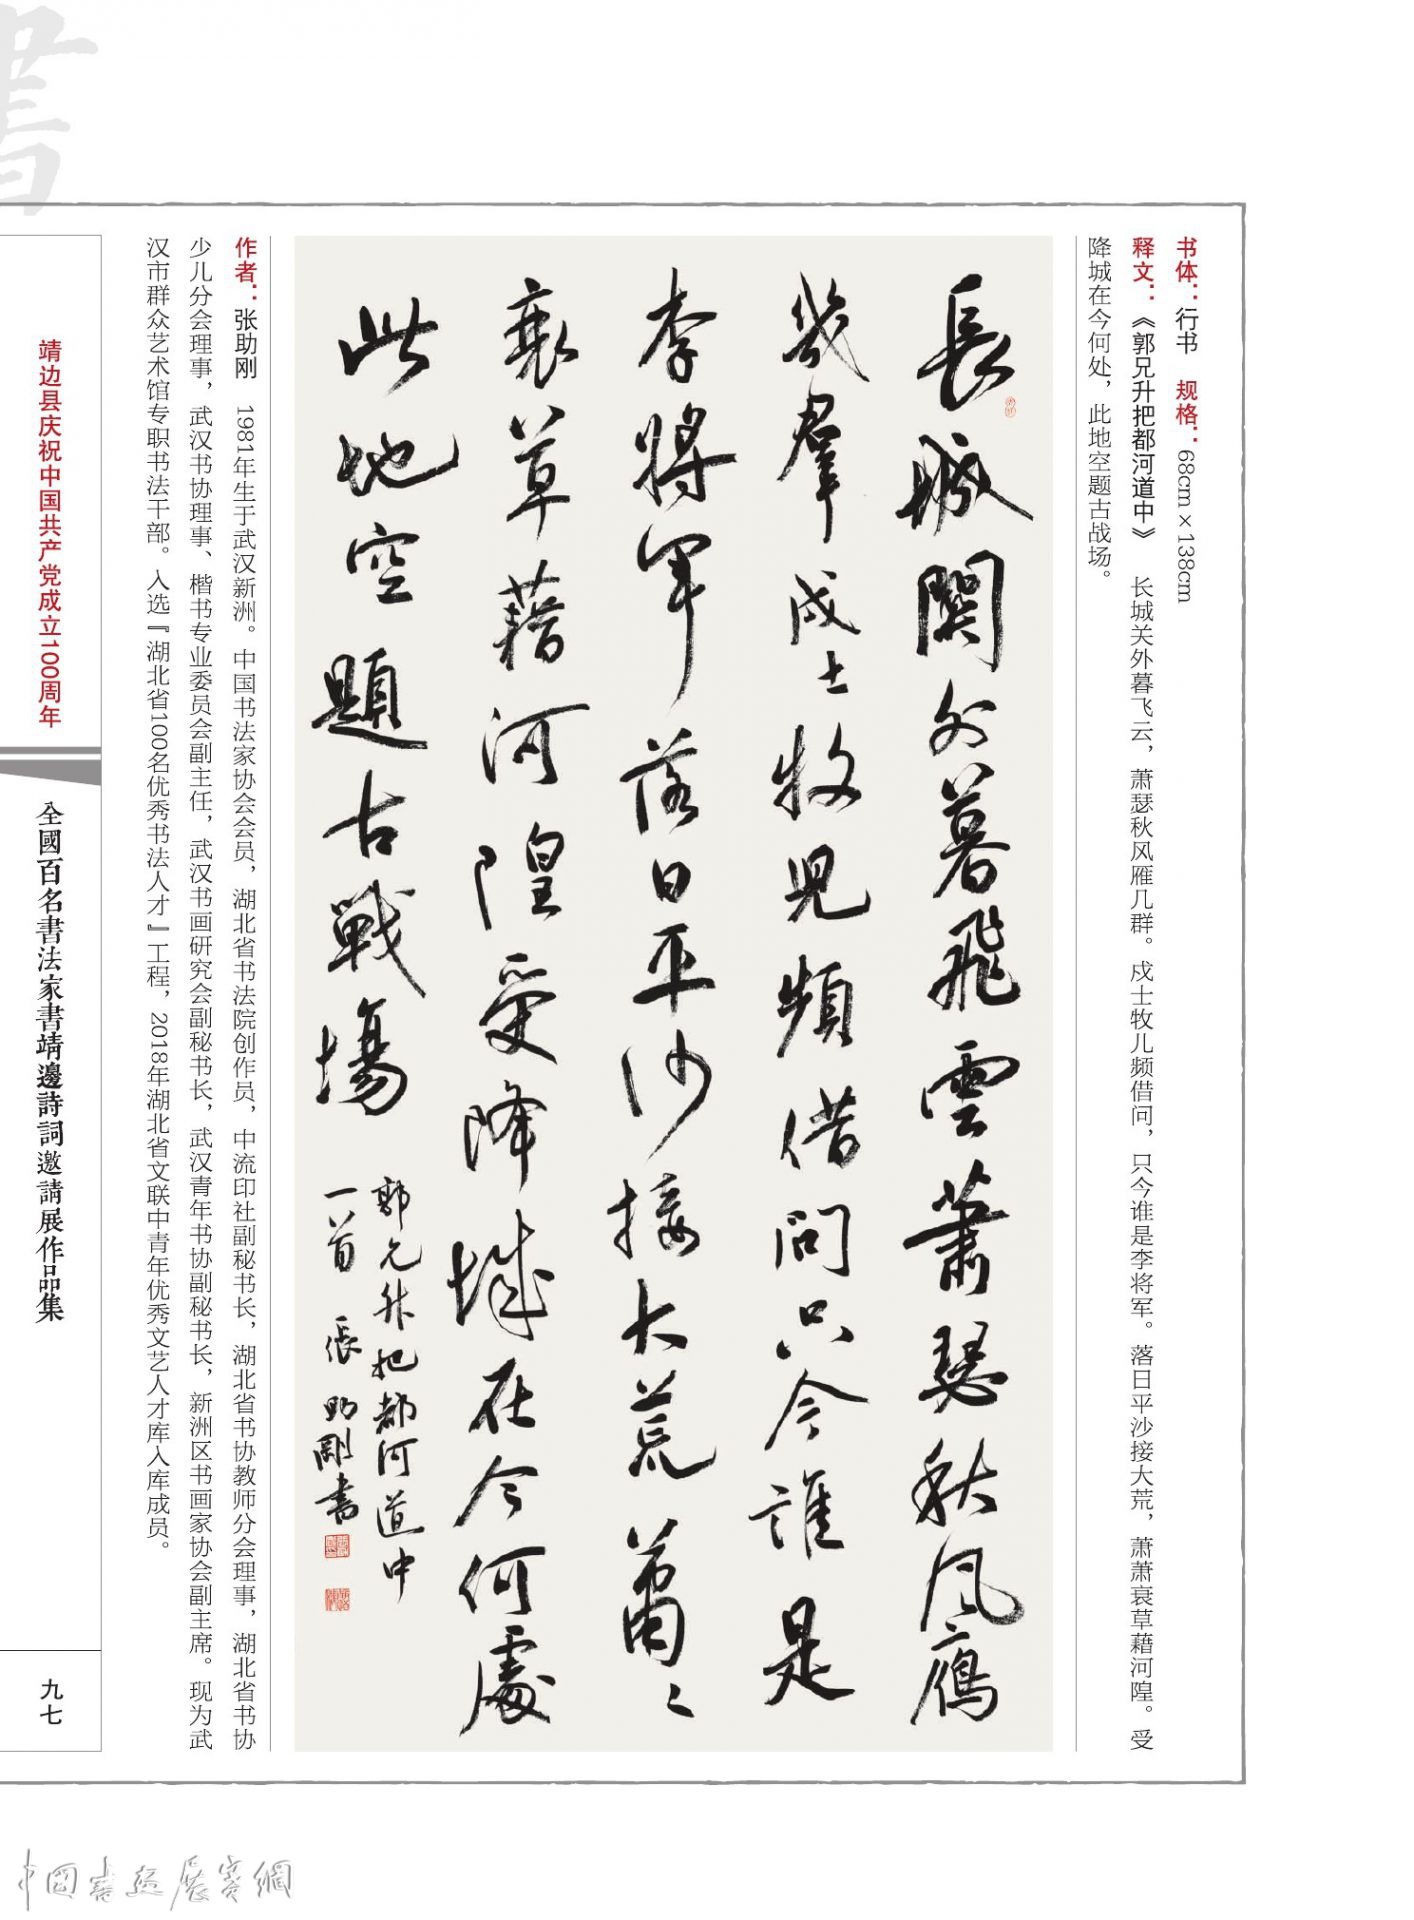 書
书体：行书　规格：68cm×138cm
释文：《郭兄升把都河道中》　长城关外暮飞云，萧瑟秋风雁几群。戍士牧儿频借问，只今谁是李将军。落日平沙接大荒，萧萧衰草藉河隍。受
降城在今何处，此地空题古战场。
長城關外暮飛雲蕭瑟秋風雁
幾群戍士牧児頻借問只今誰是
李將軍落日平沙接大荒蕭〻
衰草藉河隍受降城在今何處
此地空題古戰場
郭兄升把都河道中
一首　張助剛書
作者：张助刚　1981年生于武汉新洲。中国书法家协会会员，湖北省书法院创作员，中流印社副秘书长，湖北省书协教师分会理事，湖北省书协
少儿分会理事，武汉书协理事、楷书专业委员会副主任，武汉书画研究会副秘书长，武汉青年书协副秘书长，新洲区书画家协会副主席。现为武
汉市群众艺术馆专职书法干部。入选『湖北省100名优秀书法人才』工程，2018年湖北省文联中青年优秀文艺人才库入库成员。
靖边县庆祝中国共产党成立100周年
全國百名書法家書靖邊詩詞邀請展作品集
九七
中國書画展賽網